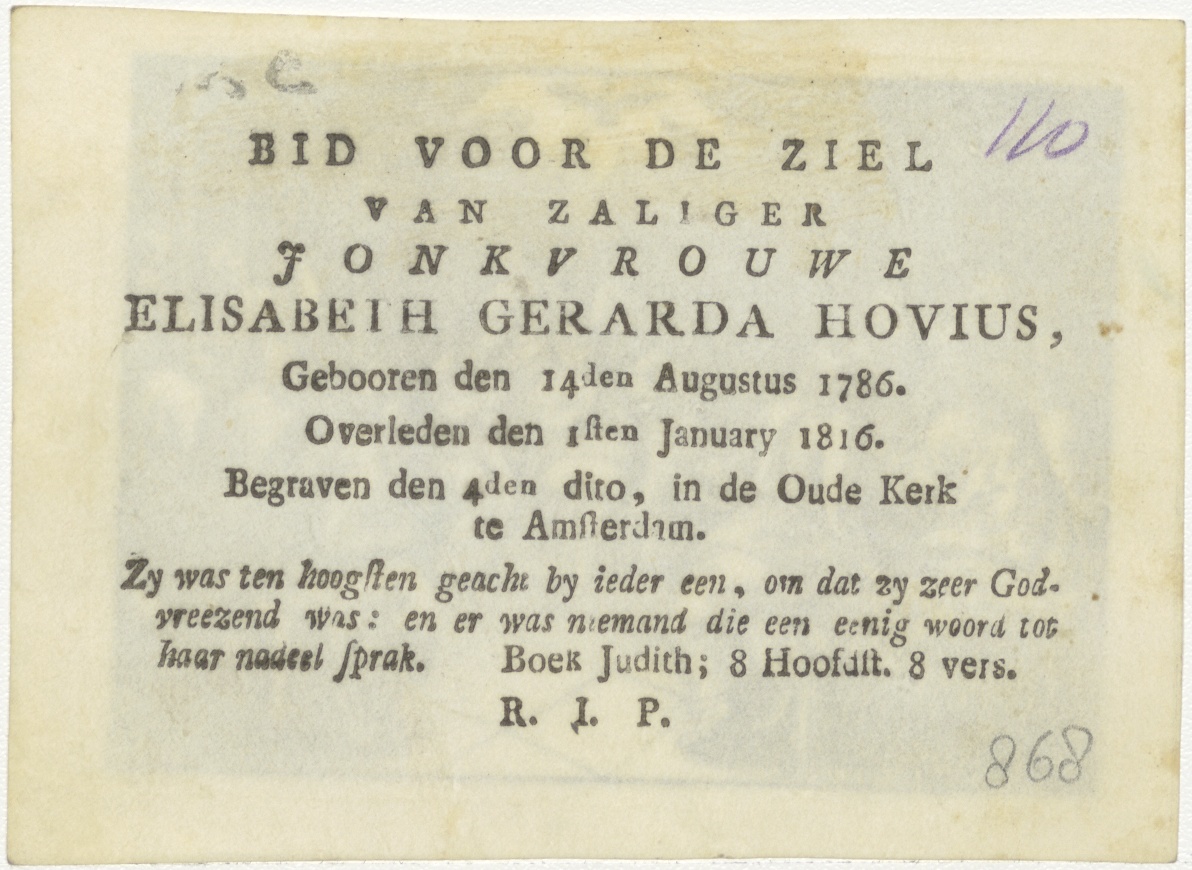 110
BID VOOR DE ZIEL
VAN ZALIGER
JONKVROUWE
ELISABETH GERARDA HOVIUS,
Gebooren den 14den Augustus 1786.
Overleden den 1ſten January 1816.
Begraven den 4den dito, in de Oude Kerk
te Amſterdam.
Zy was ten hoogſten geacht by ieder een, om dat zy zeer God-
vreezend was: en er was niemand die een eenig woord tot
haar nadeel ſprak. Boek Judith; 8 Hoofdſt. 8 vers.
R. I. P.
868